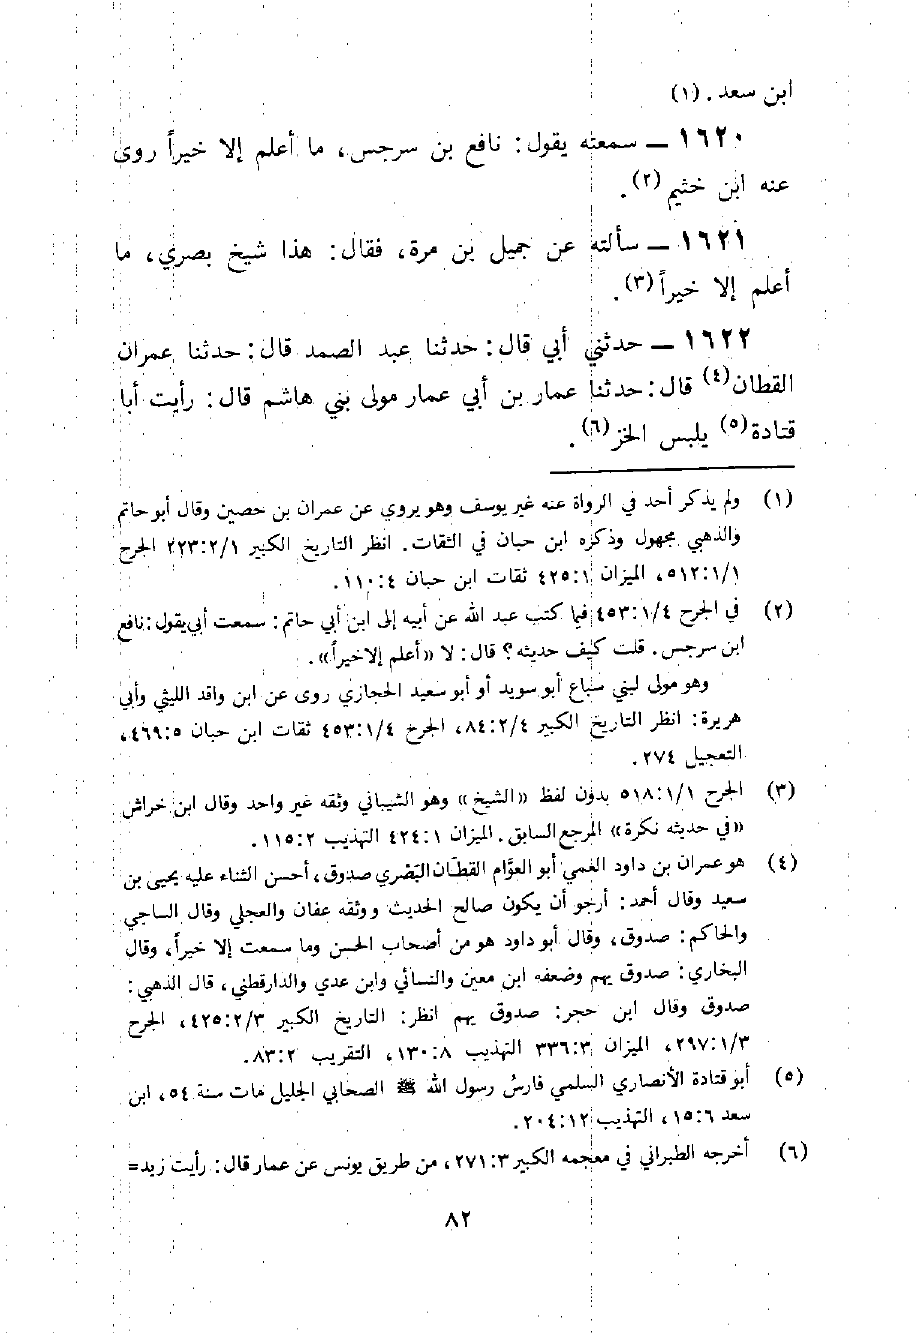 ابن سعد . (١)
١٦٢٠ ــ سمعته يقول : نافع بن سرجس، ما أعلم إلا خيراً روى
عنه ابن خثيم (٢).
١٦٢١ ــ سألته عن جميل بن مرة، فقال : هذا شيخ بصري، ما
أعلم إلا خيراً (٣).
١٦٢٢ ــ حدثني أبي قال : حدثنا عبد الصمد قال : حدثنا عمران
القطان (٤) قال : حدثنا عمار بن أبي عمار مولى بني هاشم قال : رأيت أبا
قتادة (٥) يلبس الخز (٦).
(١) ولم يذكر أحد في الرواة عنه غير يوسف وهو يروي عن عمران بن حصين وقال أبو حاتم
والذهبي مجهول وذكره ابن حبان في الثقات. انظر التاريخ الكبير ٢٢٣:٢/١ الجرح
٥١٢:١/١، الميزان ٤٢٥:١ ثقات ابن حبان ١١٠:٤.
(٢) في الجرح ٤٥٣:١/٤ فيما كتب عبد الله عن أبيه إلى ابن أبي حاتم : سمعت أبي يقول : نافع
ابن سرجس. قلت كيف حديثه؟ قال : لا «أعلم إلا خيراً».
وهو مولى لبني سباع أبو سويد أو أبو سعيد الحجازي روى عن ابن واقد الليثي وأبي
هريرة : انظر التاريخ الكبير ٨٤:٢/٤، الجرح ٤٥٣:١/٤ ثقات ابن حبان ٤٦٩:٥،
التعجيل ٢٧٤.
(٣) الجرح ٥١٨:١/١ بدون لفظ «الشيخ» وهو الشيباني وثقه غير واحد وقال ابن خراش
«في حديثه نكرة» المرجع السابق. الميزان ٤٢٤:١ التهذيب ١١٥:٢.
(٤) هو عمران بن داود العمي أبو العوَّام القطَّان البَصْري صدوق، أحسن الثناء عليه يحيى بن
سعيد وقال أحمد : أرجو أن يكون صالح الحديث ووثقه عفان والعجلي وقال الساجي
والحاكم : صدوق، وقال أبو داود هو من أصحاب الحسن وما سمعت إلا خيراً، وقال
البخاري : صدوق يهم وضعفه ابن معين والنسائي وابن عدي والدارقطني، قال الذهبي :
صدوق وقال ابن حجر : صدوق يهم انظر : التاريخ الكبير ٤٢٥:٢/٣، الجرح
٢٩٧:١/٣، الميزان ٣٣٦:٣ التهذيب ١٣٠:٨، التقريب ٨٣:٢.
(٥) أبو قتادة الأنصاري السلمي فارسُ رسول الله ﷺ الصحابي الجليل مات سنة ٥٤، ابن
سعد ١٥:٦، التهذيب ٢٠٤:١٢.
(٦) أخرجه الطبراني في معجمه الكبير ٢٧١:٣، من طريق يونس عن عمار قال : رأيت زيد=
٨٢